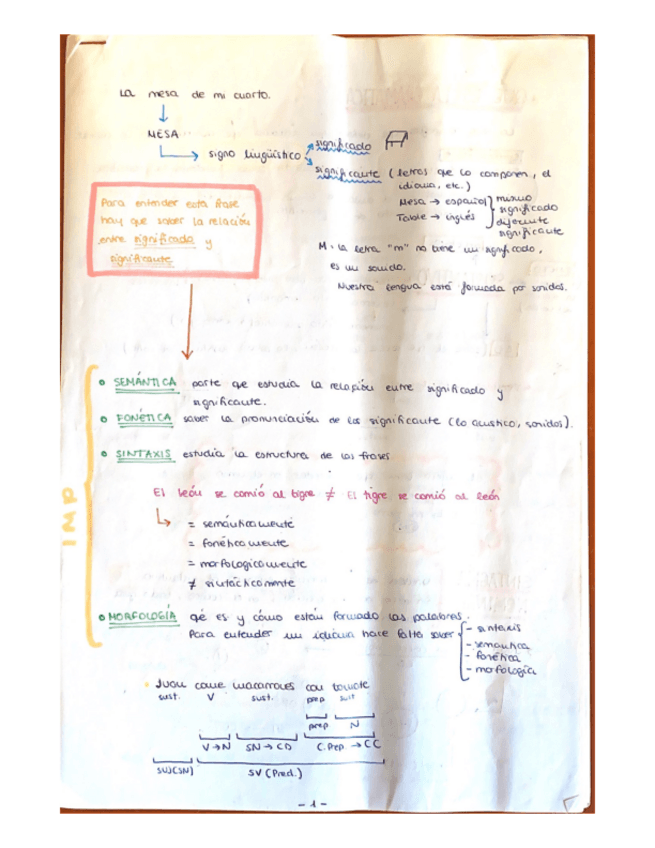 La mesa de mi cuarto.
MESA
signo lingüístico
significado
significante (letras que lo componen, el
idioma, etc.)
Mesa → español
Table → inglés
mismo
significado
diferente
significante
Para entender esta frase
hay que saber la relación
entre significado y
significante
M - la letra "m" no tiene un significado,
es un sonido.
Nuestra lengua está formada por sonidos.
IMP
SEMÁNTICA parte que estudia la relación entre significado y
significante.
FONÉTICA saber la pronunciación de los significante (lo acustico, sonidos).
SINTAXIS estudia la estructura de las frases
El león se comió al tigre ≠ El tigre se comió al león
= semánticamente
= fonéticamente
= morfologicamente
≠ sintácticamente
MORFOLOGÍA qé es y cómo están formado las palabras.
Para entender un idioma hace falta saber
- sintaxis
- semantica
- fonética
- morfología
Juan come macarrones con tomate
sust. V sust. prep sust
prep N
V→N SN→CD C.Prep →CC
SUJ(SN) SV (Pred.)
- 1 -